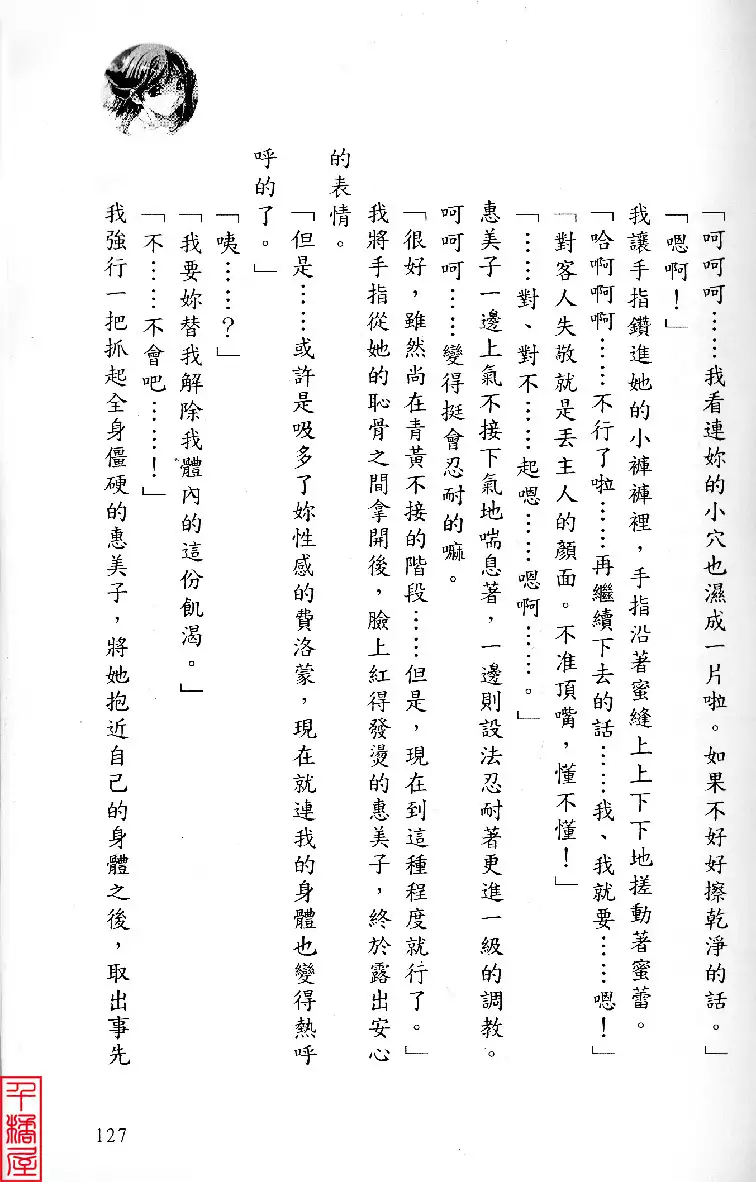 「呵呵呵……我看連妳的小穴也濕成一片啦。如果不好好擦乾淨的話。」
「嗯啊！」
我讓手指鑽進她的小褲褲裡，手指沿著蜜縫上上下下地搓動著蜜蕾。
「哈啊啊啊……不行了啦……再繼續下去的話……我、我就要……嗯！」
「對客人失敬就是丟主人的顏面。不准頂嘴，懂不懂！」
「……對、對不……起嗯……嗯啊……。」
惠美子一邊上氣不接下氣地喘息著，一邊則設法忍耐著更進一級的調教。
呵呵呵……變得挺會忍耐的嘛。
「很好，雖然尚在青黃不接的階段……但是，現在到這種程度就行了。」
我將手指從她的恥骨之間拿開後，臉上紅得發燙的惠美子，終於露出安心
的表情。
「但是……或許是吸多了妳性感的費洛蒙，現在就連我的身體也變得熱呼
呼的了。」
「咦……？」
「我要妳替我解除我體內的這份飢渴。」
「不……不會吧……！」
我強行一把抓起全身僵硬的惠美子，將她抱近自己的身體之後，取出事先
127